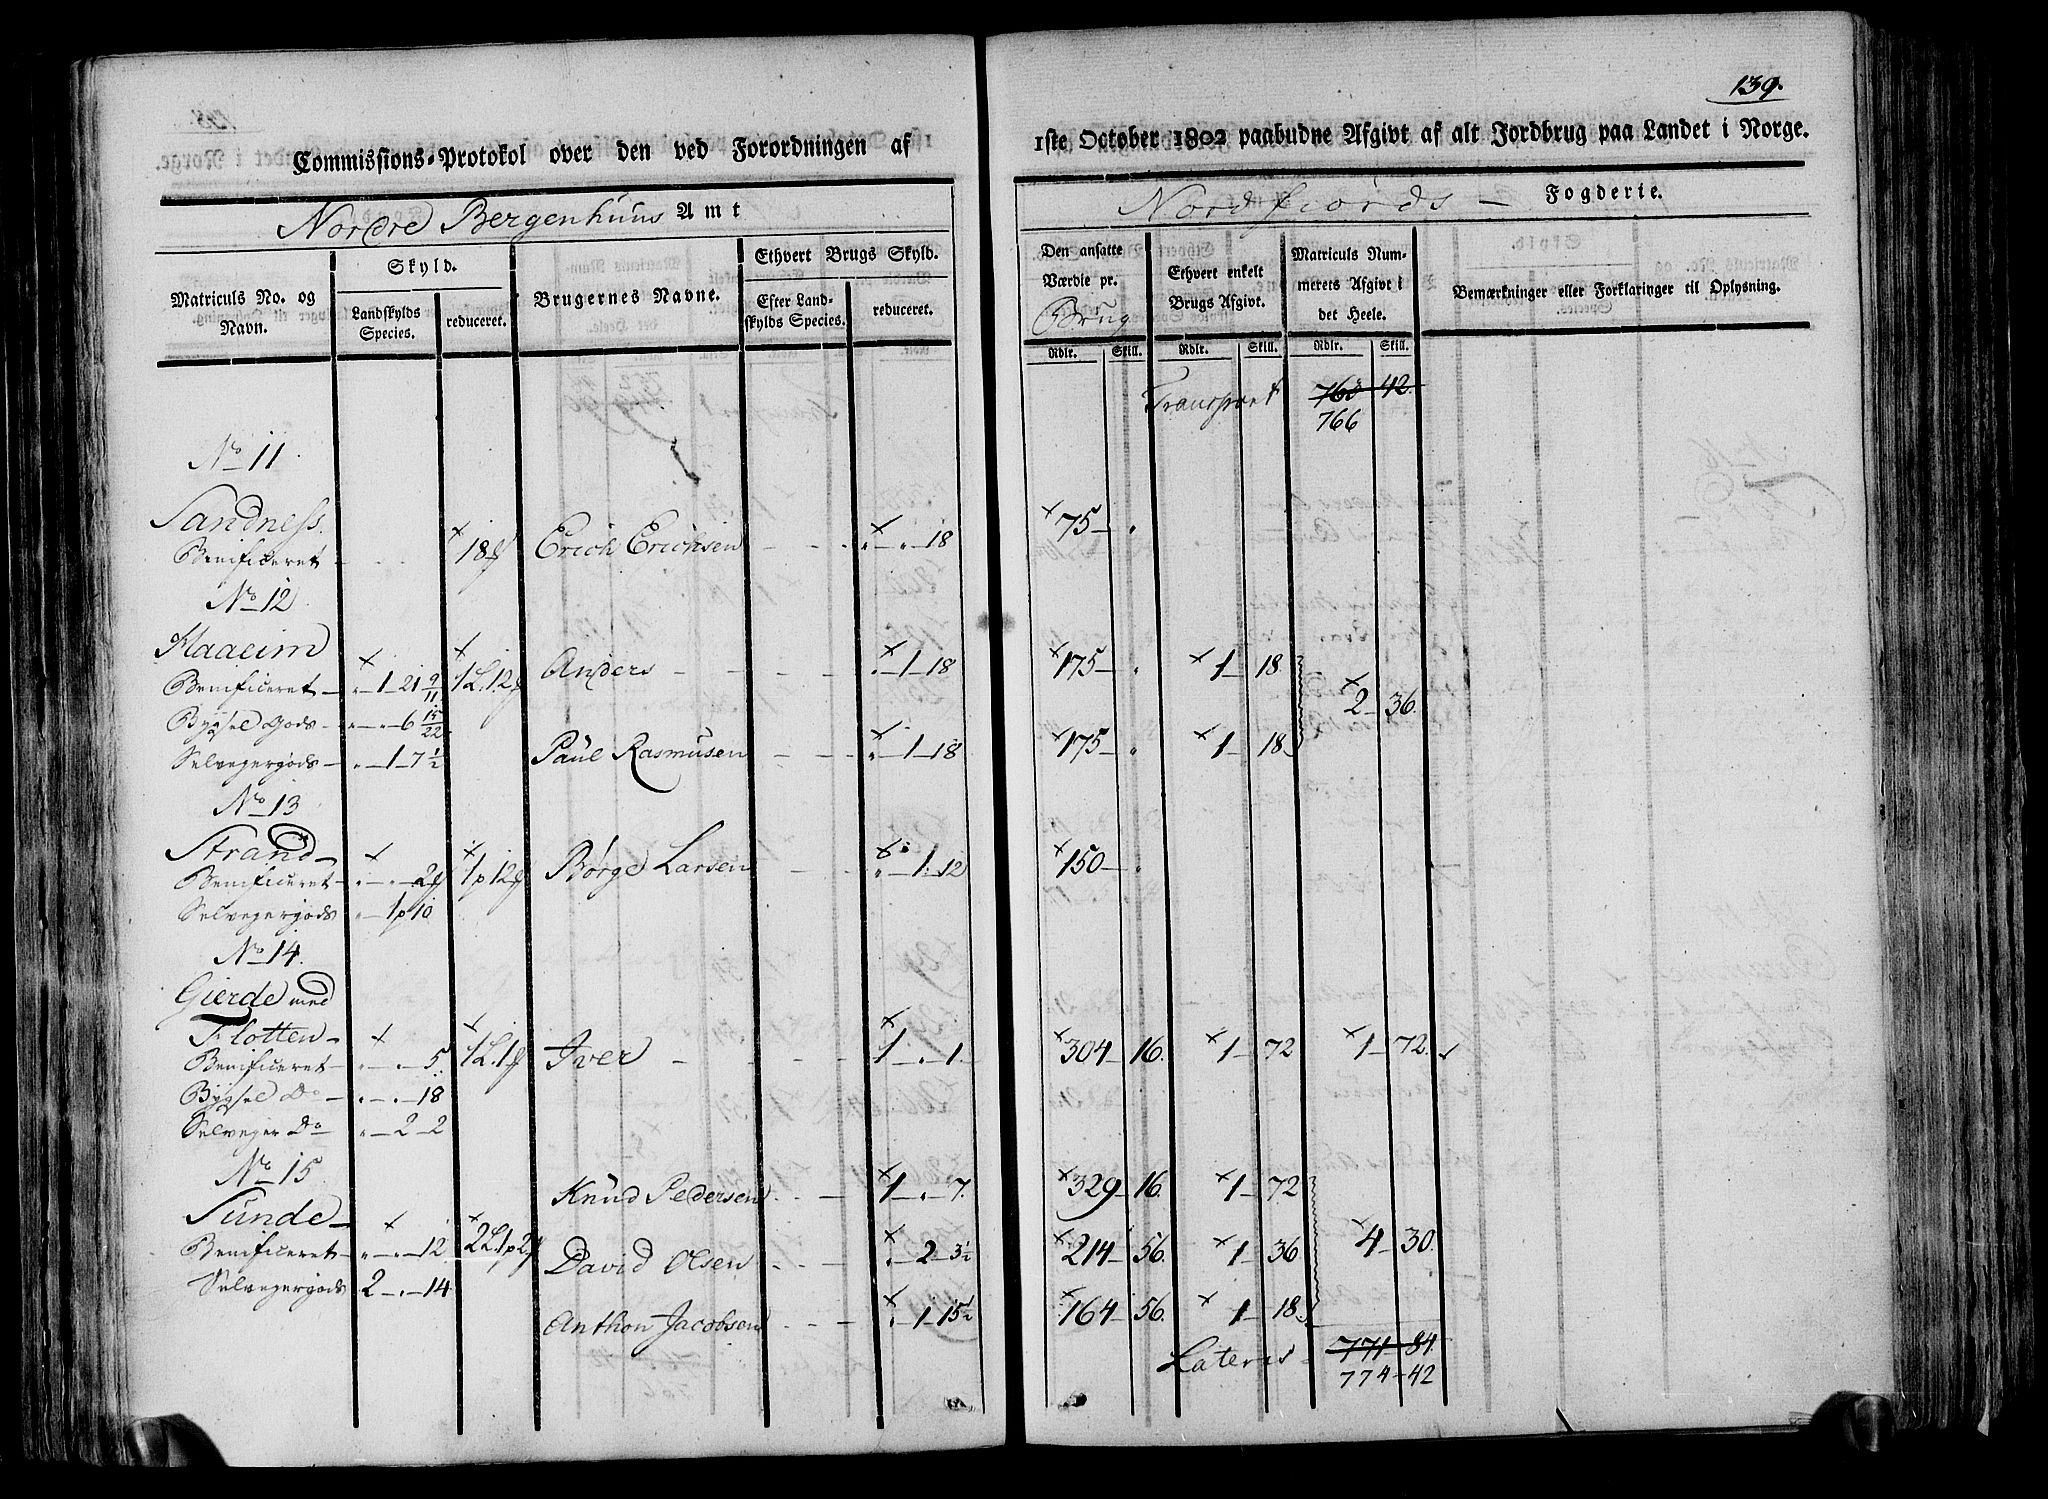 139.
Commissions-Protokol over den ved Forordningen af
1ste October 1802 paabudne Afgivt af alt Jordbrug paa Landet i Norge.
Nordre Bergenhuus Amt
Nordfiords — Fogderie.
Matriculs No. og Navn.
Skyld.
Landskylds Species.
reduceret.
Brugernes Navne.
Ethvert Brugs Skyld.
Efter Landskylds Species.
reduceret.
Den ansatte Værdie pr. Brug
Ethvert enkelt Brugs Afgivt.
Matriculs Nummerets Afgivt i det Heele.
Bemærkninger eller Forklaringer til Oplysning.
Rdlr. Skill. Rdlr. Skill. Rdlr. Skill.
Transport 763 42.
766
No 11
Sandness.
Benificeret 18 Erich Erichsen 18 75
No 12
Haaeim
Benificeret 1 21 9/11 1L. 12 Anders 1 18 175 1 18
Bygsel Gods 6 15/22 2 36.
Selvegergods 1 7 1/2 Paul Rasmusen 1 18 175 1 18
No 13
Strand
Benificeret 2 1p 12 Børge Larsen 1 12 150
Selvegergods 1p 10
No 14.
Gierde med
Flotten
Benificeret 5 1L. 1 Iver 1 1 304 16. 1 72 1 72.
Bygsel Do 18
Selveger Do 2 2
No 15
Knud Pedersen 1 7. 329 16. 1 72
Sunde
Benificeret 12 2L. 1p 2 David Olsen 2 3 1/2 214 56. 1 36 4 30.
Selvegergods 2 14
Anthon Jacobsen 1 15 1/2 164 56. 1 18
Lateris 771 84
774 42